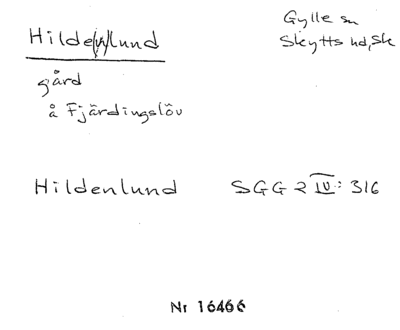 Hilde(n)lund
gård
å Fjärdingslöv
Gylle sn
Skytts hd, Sk
Hildenlund SGG 2 IV: 316
Nr 16466